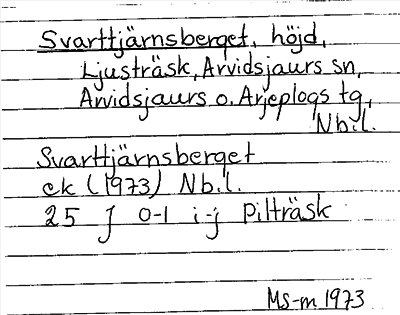 Svarttjärnsberget, höjd,
Ljusträsk, Arvidsjaurs sn,
Arvidsjaurs o. Arjeplogs tg,
Nb.l.
Svarttjärnsberget
ek (1973) Nb.l.
25 J 0-1 i-j Pilträsk
Ms-m 1973